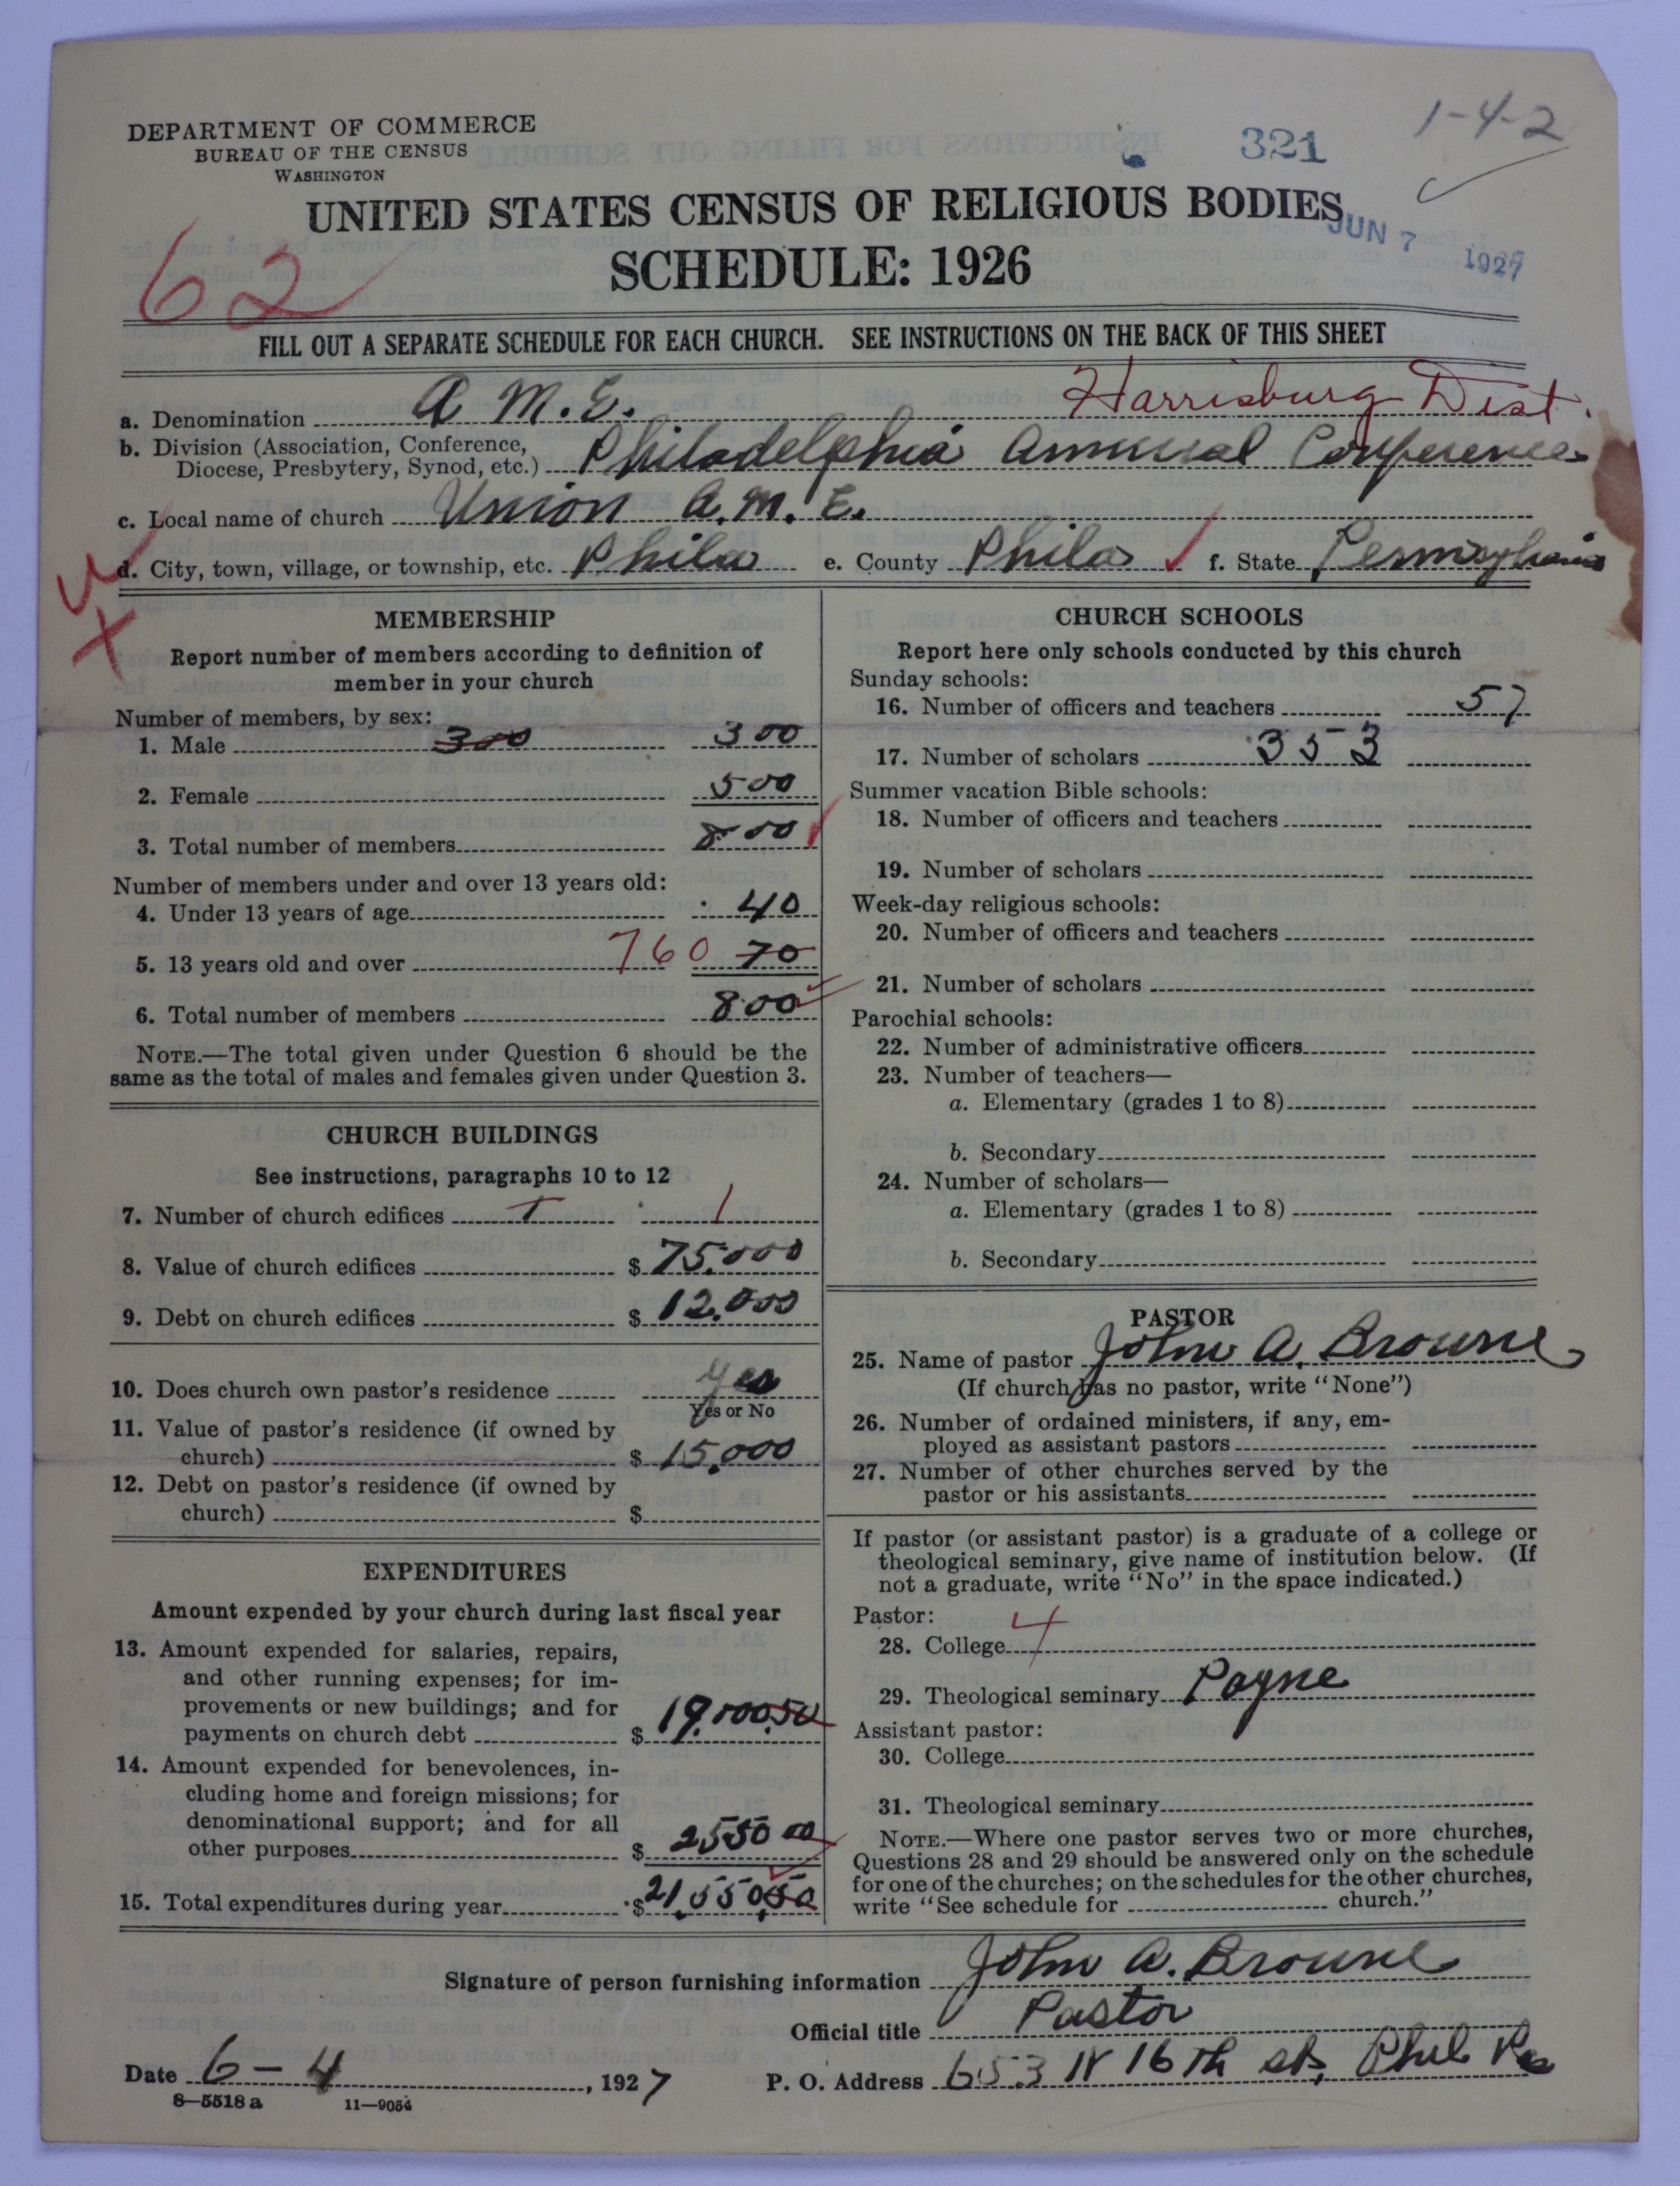 1-4-2
DEPARTMENT OF COMMERCE
BUREAU OF THE CENSUS
WASHINGTON
321
UNITED STATES CENSUS OF RELIGIOUS BODIES
JUN 7 1927
SCHEDULE: 1926
62
FILL OUT A SEPARATE SCHEDULE FOR EACH CHURCH. SEE INSTRUCTIONS ON THE BACK OF THIS SHEET
Harrisburg Dist.
a. Denomination A M.E.
b. Division (Association, Conference,
Diocese, Presbytery, Synod, etc.) Philadelphia Annual Conference
c. Local name of church Union A.M.E.
d. City, town, village, or township, etc. Phila e. County Phila f. State Pennsylvania
MEMBERSHIP
Report number of members according to definition of
member in your church
Number of members, by sex:
1. Male 300 300
2. Female 500
3. Total number of members 800
Number of members under and over 13 years old:
4. Under 13 years of age 40
5. 13 years old and over 760 70
6. Total number of members 800
NOTE.—The total given under Question 6 should be the
same as the total of males and females given under Question 3.
CHURCH BUILDINGS
See instructions, paragraphs 10 to 12
7. Number of church edifices 1 1
8. Value of church edifices $ 75.000
9. Debt on church edifices $ 12.000
10. Does church own pastor's residence yes
Yes or No
11. Value of pastor's residence (if owned by
church) $ 15,000
12. Debt on pastor's residence (if owned by
church) $
EXPENDITURES
Amount expended by your church during last fiscal year
13. Amount expended for salaries, repairs,
and other running expenses; for im-
provements or new buildings; and for
payments on church debt $ 19.000.50
14. Amount expended for benevolences, in-
cluding home and foreign missions; for
denominational support; and for all
other purposes $ 2550 00
15. Total expenditures during year $ 21,550,50
CHURCH SCHOOLS
Report here only schools conducted by this church
Sunday schools:
16. Number of officers and teachers 57
17. Number of scholars 353
Summer vacation Bible schools:
18. Number of officers and teachers
19. Number of scholars
Week-day religious schools:
20. Number of officers and teachers
21. Number of scholars
Parochial schools:
22. Number of administrative officers
23. Number of teachers—
a. Elementary (grades 1 to 8)
b. Secondary
24. Number of scholars—
a. Elementary (grades 1 to 8)
b. Secondary
PASTOR
25. Name of pastor John A. Browne
(If church has no pastor, write "None")
26. Number of ordained ministers, if any, em-
ployed as assistant pastors
27. Number of other churches served by the
pastor or his assistants
If pastor (or assistant pastor) is a graduate of a college or
theological seminary, give name of institution below. (If
not a graduate, write "No" in the space indicated.)
Pastor:
28. College 4
29. Theological seminary Payne
Assistant pastor:
30. College
31. Theological seminary
NOTE.—Where one pastor serves two or more churches,
Questions 28 and 29 should be answered only on the schedule
for one of the churches; on the schedules for the other churches,
write "See schedule for church."
Signature of person furnishing information John A. Browne
Official title Pastor
Date 6-4, 1927 P. O. Address 653 N 16th st, Phil Pa
8—5518 a 11—9054